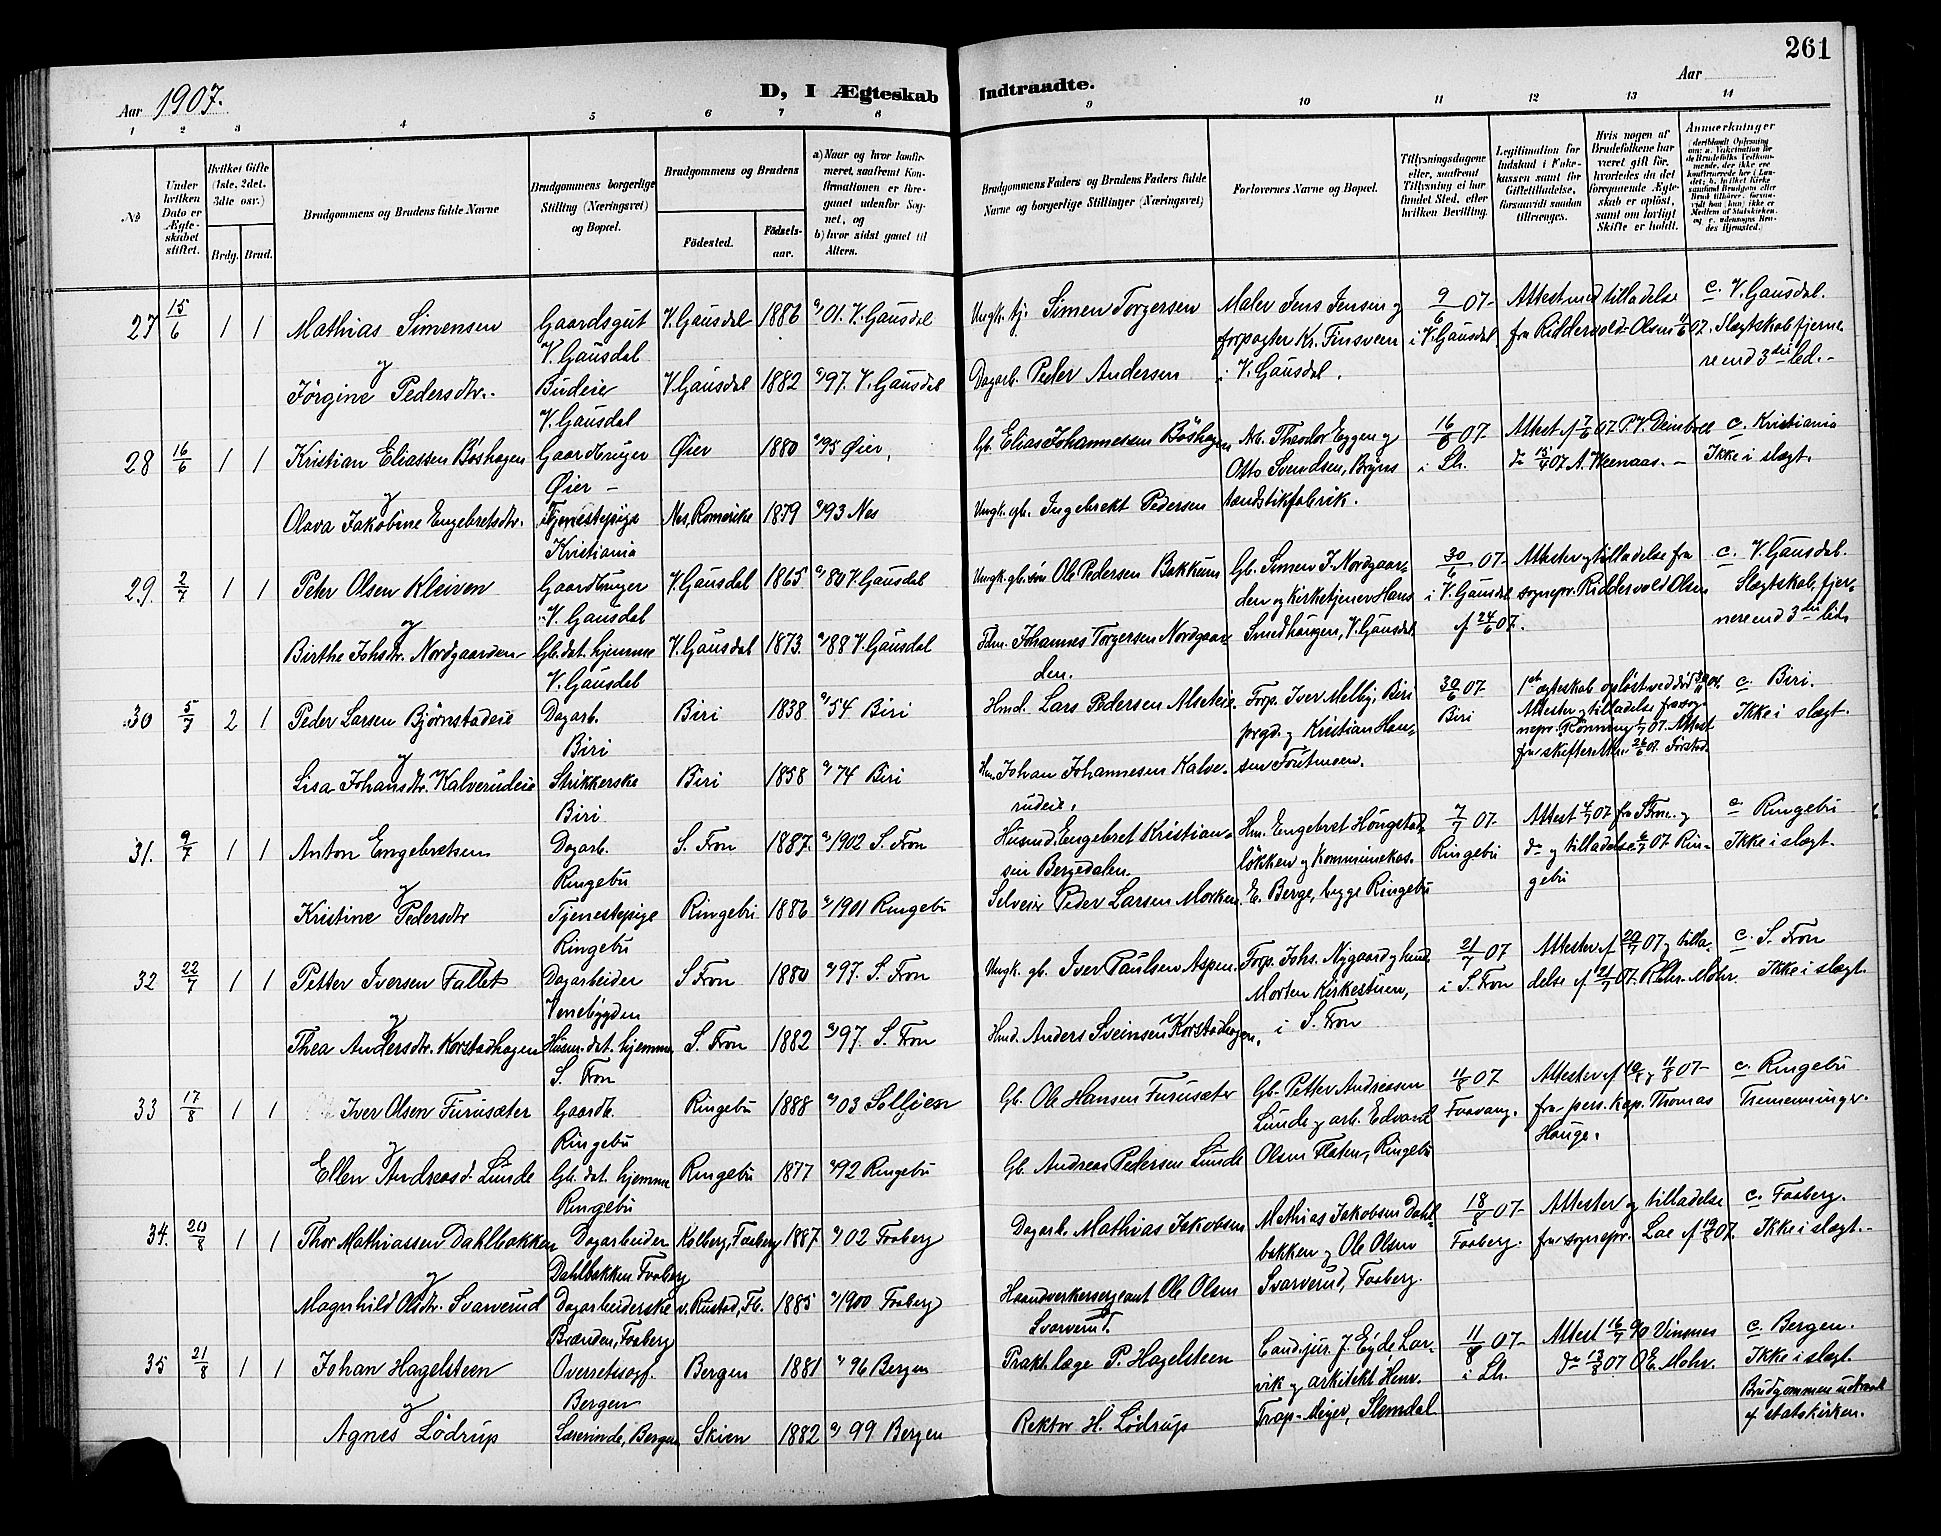 261
Aar 1907.
D, I Ægteskab Indtraadte.
Aar
1 2 3 4 5 6 7 8 9 10 11 12 13 14
No
Under hvilken Dato er Ægteskabet stiftet.
Hvilket Gifte (1ste, 2det, 3die osv.)
Brdg. Brud.
Brudgommens og Brudens fulde Navne
Brudgommens borgerlige Stilling (Næringsvei) og Bopæl.
Brudgommens og Brudens
Födested. Födsels-aar.
a) Naar og hvor konfirmeret, saafremt Konfirmationen er foregaaet udenfor Sognet, og b) hvor sidst gaaet til Alters.
Brudgommens Faders og Brudens Faders fulde Navne og borgerlige Stillinger (Næringsvei)
Forlovernes Navne og Bopæl.
Tillysningsdagene eller, saafremt Tillysning ei har fundet Sted, efter hvilken Bevilling.
Legitimation for Indskud i Enkekassen samt for Giftetilladelse, forsaavidt saadan tiltrænges.
Hvis nogen af Brudefolkene har været gift før, hvorledes da det foregaaende Ægteskab er opløst, samt om lovligt Skifte er holdt.
Anmerkninger
27 15/6 1 1 Mathias Simensen Gaardsgut V. Gausdal V. Gausdal 1886 01. V. Gausdal Ungk. tj. Simen Torgersen Maler Jens Jensen og 9/6 07- Attest med tilladelse c. V. Gausdal.
forpagter Kr. Finsveen i V. Gausdal fra Riddervold-Olsen 07. Slægtskab fjerne-
og i V. Gausdal. re end 3die led.-
Jörgine Pedersdtr. Budeie V. Gausdal V. Gausdal 1882 97. V. Gausdal Dagarb. Peder Andersen
28 16/6 1 1 Kristian Eliassen Böshagen Gaardbruger Øier - Øier 1880 95 Øier, Gb. Elias Johannesen Böshagen Theodor Eggen og 16/6 07- Attest c. Kristiania
Otto Svendsen, Bryns i Lh. A. Weenaas. - Ikke i slægt.
og tændstikfabrik.
Olava Jakobine Engebretsdtr. Tjenestepige Kristiania Nes, Romerike 1879 93 Nes Ungk. gb. Ingebrekt Pedersen
29. 2/7 1 1 Peter Olsen Kleiven Gaardbruger V. Gausdal V. Gausdal 1865 80 V. Gausdal Ungk. gb. sön Ole Pedersen Bakkum Gb. Simen J. Nordgaar- 30/6 07- Attester og tilladelse fra c. V. Gausdal.
den og kirketjener Hans i V. Gausdal sognepr. Riddervold Olsen Slægtskab fjer-
og Smedhaugen, V. Gausdal af 24/6 07. nere end 3die led,
Birthe Johsdtr. Nordgaarden Gb. dat. hjemme V. Gausdal V. Gausdal 1873. 88 V. Gausdal Fdm. Johannes Torgersen Nordgaar-
den.
30 5/7 2 1 Peder Larsen Björnstadeie Dagarb. Biri Biri 1838 54 Biri Hmd. Lars Pedersen Alseteie Forp. Iver Melby, Biri 30/6 07- 1ste ægteskab oplöst ved död c. Biri.
prgd. og Kristian Han- Biri Attester og tilladelse fra sog- Ikke i slægt.
og sen Foutmoen. nepr. Rönning 07. Attest
fra skifteretten 26/6 07.
Lisa Johansdtr. Kalverudeie Strikkerske Biri Biri 1858 74 Biri Hm. Johan Johannesen Kalve-
rudeie.
31. 9/7 1 1 Anton Engebretsen Dagarb. Ringebu S. Fron 1887. 1902 S. Fron Husmd. Engebret Kristian- Hm. Engebret Hougstad- 7/7 07- Attest 4/7 07 fra S. Fron og c. Ringebu
sen Bergedalen. lökken og Kommunekas. Ringebu do og tilladelse 07 Rin- Ikke i slægt.
og E. Berge, begge Ringebu gebu
Kristine Pedersdtr Tjenestepige Ringebu Ringebu 1886 1901 Ringebu Selveier Peder Larsen Morken
32 22/7 1 1 Petter Iversen Fallet Dagarbeider Venebygden S. Fron 1880 97. S. Fron Ungk. gb. Iver Paulsen Aspen. Forp. Johs. Nygaard og husmd. 21/7 07 Attester af 20/7 07 og tilla- c. S. Fron
Morten Kirkestuen, i S. Fron delse af 21/7 07. Mohr. Ikke i slægt
og i S. Fron
Thea Andersdtr. Korstadhagen Husm. dat. hjemme S. Fron S. Fron 1882 97. S. Fron Hmd. Anders Sveinsen Korstadhagen,
33 17/8 1 1 Iver Olsen Furusæter Gaardb. Ringebu Ringebu 1888 03 Solljien Gb. Ole Hansen Furusæter Gb. Petter Andreassen 11/8 07 Attester af 10/8 og 11/8 07- c. Ringebu
Lunde og arb. Edvard Faavang. fra pers. kap. Thomas Tremenninger.
og Olsen Flaten, Ringebu Hauge.
Ellen Andreasd. Lunde Gb. dat. hjemme Ringebu Ringebu 1877 92 Ringebu Gb. Andreas Pedersen Lunde
34. 20/8 1 1 Thor Mathiassen Dahlbakken Dagarbeider Dahlbakken Faaberg Kolberg, Faaberg 1887 02 Faaberg Dagarb. Mathias Jakobsen Mathias Jakobsen Dahl- 18/8 07- Attester og tilladelse c. Faaberg.
bakken og Ole Olsen Faaberg. fra sognepr. Loe af 19/8 07. Ikke i slægt.-
og Svarverud, Faaberg.
Magnhild Olsdtr. Svarverud Dagarbeiderske Brænden, Faaberg v. Rustad, Fb. 1885 1900 Faaberg Haandverkersergeant Ole Olsen
Svarverud.
35 21/8 1 1 Johan Hagelsteen Overretssagf. Bergen Bergen 1881 96 Bergen Prakt. læge P. Hagelsteen Cand. jur. J. Eyde Lar- 11/8 07- Attest 16/7 90 Vinsnes c. Bergen.
vik og arkitekt Henr. i Lh. do 13/8 07 O. E. Mohr. Ikke i slægt.
og Trap-Meyer, Slemdal Brudgommen udtraadt
Agnes Lödrup Lærerinde, Bergen Skien 1882 99 Bergen Rektor H. Lödrup af statskirken.